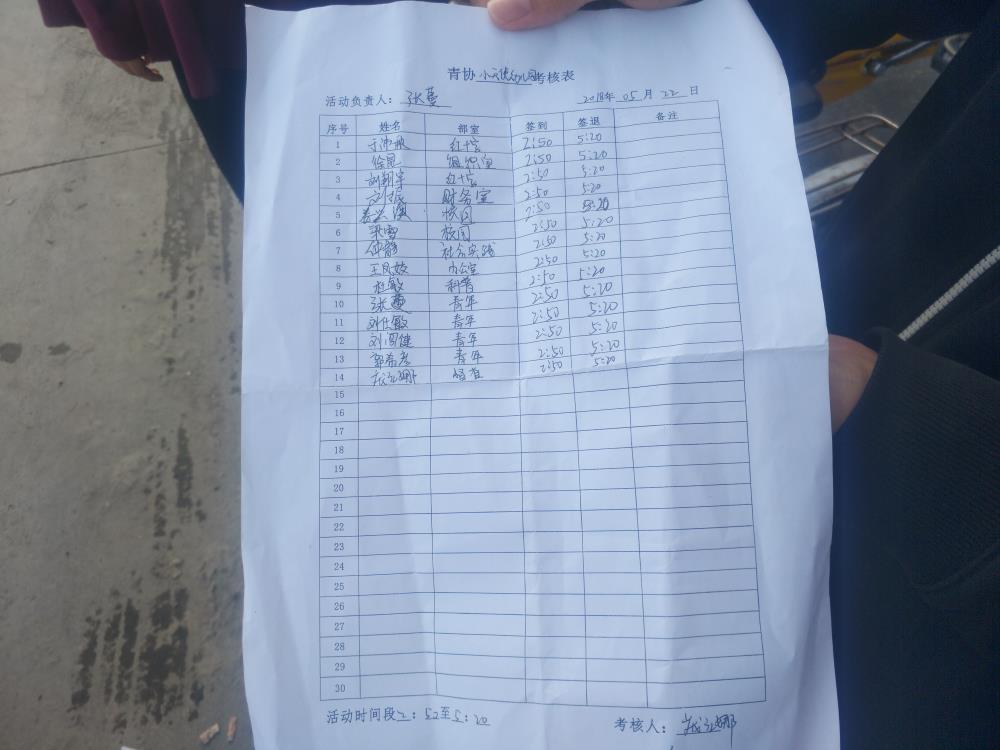 青协小天使幼儿园考核表
活动负责人: 张蔓 2018年 05 月 22 日
序号 姓名 部室 签到 签退 备注
1 红十字会 2:50 5:20
2 徐昆 组织室 2:50 5:20
3 刘翔宇 红十字会 2:50 5:20
4 刘振 财务室 2:50 5:20
5 校园 2:50 5:20
6 梁雪 校园 2:50 5:20
7 仲静 社会实践 2:50 5:20
8 王凤姣 办公室 2:50 5:20
9 杜敏 科普 2:50 5:20
10 张蔓 青年 2:50 5:20
11 刘仕敏 青年 2:50 5:20
12 刘润健 青年 2:50 5:20
13 郭希彦 青年 2:50 5:20
14 2:50 5:20
15
16
17
18
19
20
21
22
23
24
25
26
27
28
29
30
活动时间段 2:52至5:20 考核人: